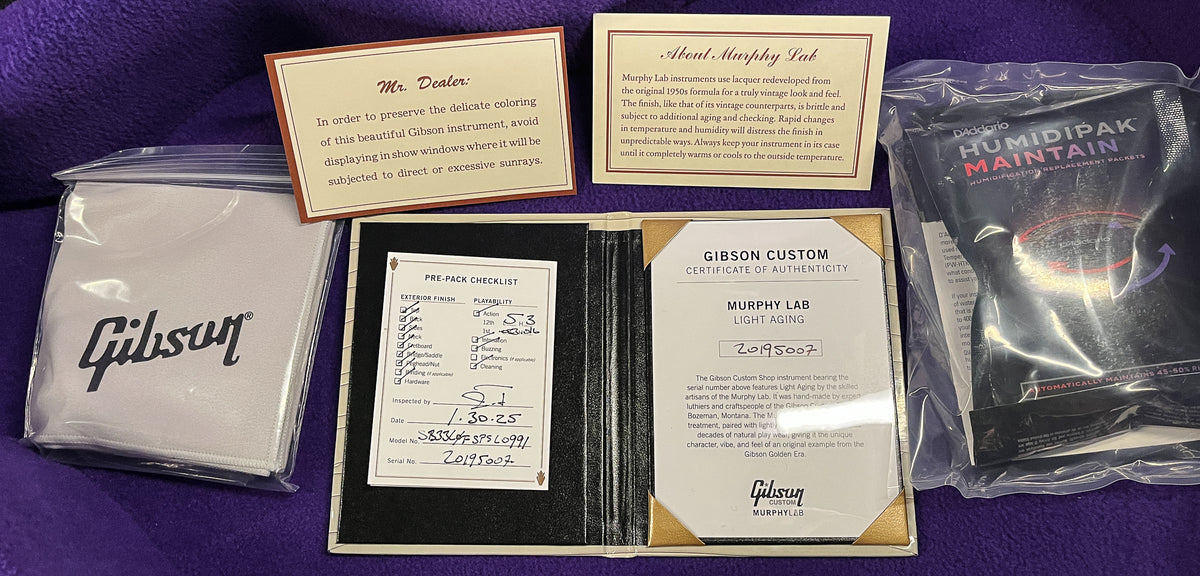 Mr. Dealer:
In order to preserve the delicate coloring
of this beautiful Gibson instrument, avoid
displaying in show windows where it will be
subjected to direct or excessive sunrays.
About Murphy Lab
Murphy Lab instruments use lacquer redeveloped from
the original 1950s formula for a truly vintage look and feel.
The finish, like that of its vintage counterparts, is brittle and
subject to additional aging and checking. Rapid changes
in temperature and humidity will distress the finish in
unpredictable ways. Always keep your instrument in its case
until it completely warms or cools to the outside temperature.
Gibson®
PRE-PACK CHECKLIST
EXTERIOR FINISH
Top
Back
Sides
Neck
Fretboard
Bridge/Saddle
Peghead/Nut
Binding (if applicable)
Hardware
PLAYABILITY
Action
12th 5 H 3
1st
Intonation
Buzzing
Electronics (if applicable)
Cleaning
Inspected by
Date 1.30.25
Model No.
Serial No. 20195007
GIBSON CUSTOM
CERTIFICATE OF AUTHENTICITY
MURPHY LAB
LIGHT AGING
20195007
The Gibson Custom Shop instrument bearing the
serial number above features Light Aging by the skilled
artisans of the Murphy Lab. It was hand-made by expert
luthiers and craftspeople of the Gibson
Bozeman, Montana. The
treatment, paired with
decades of natural play wear, giving it the unique
character, vibe, and feel of an original example from the
Gibson Golden Era.
Gibson
CUSTOM
MURPHYLAB
D'Addario
HUMIDIPAK
MAINTAIN
HUMIDIFICATION REPLACEMENT PACKETS
AUTOMATICALLY MAINTAINS 45-50% R